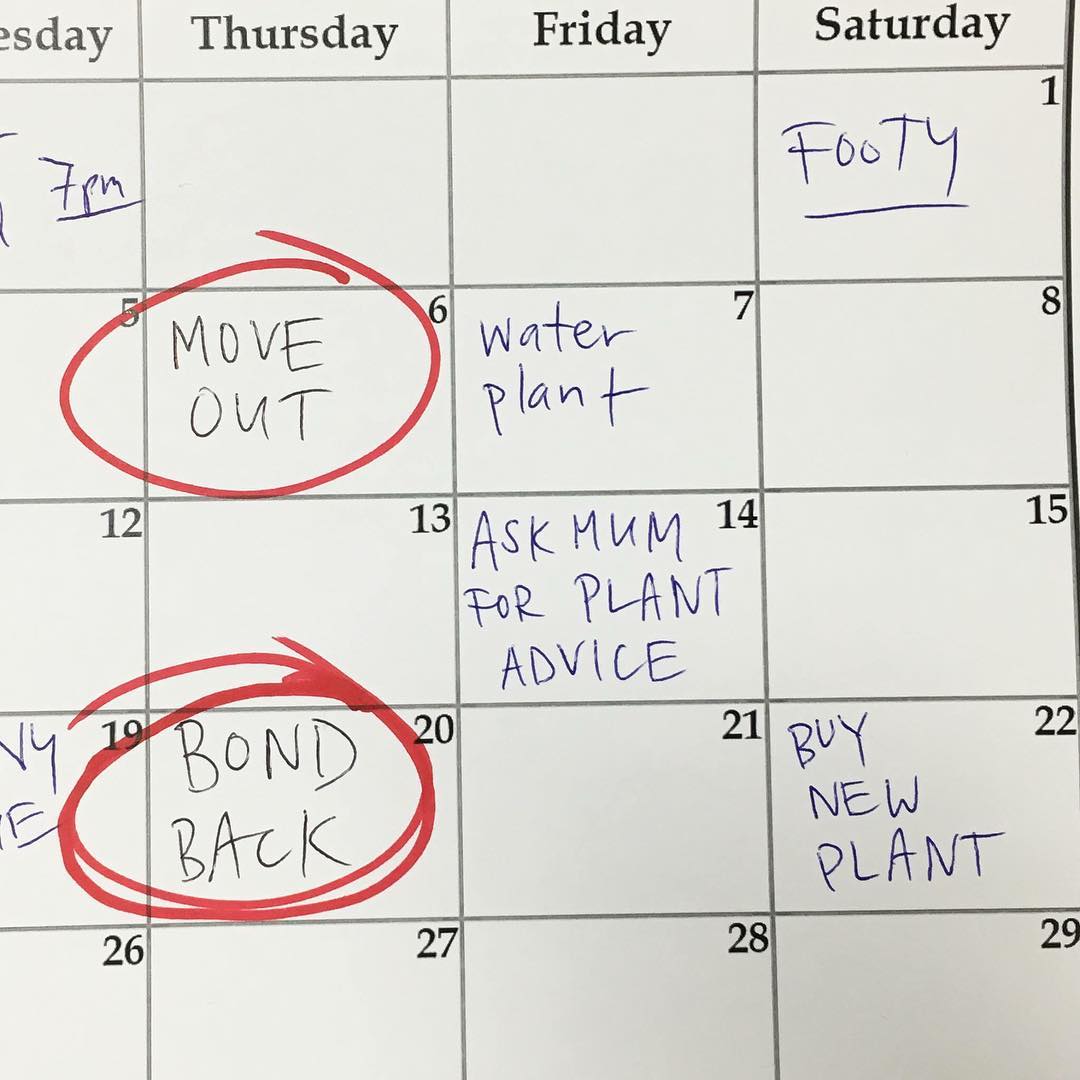 esday Thursday Friday Saturday
1
7pm
FOOTY
5 6 7 8
MOVE
OUT
water
plant
12 13 14 15
ASK MUM
FOR PLANT
ADVICE
19 20 21 22
BOND
BACK
BUY
NEW
PLANT
26 27 28 29